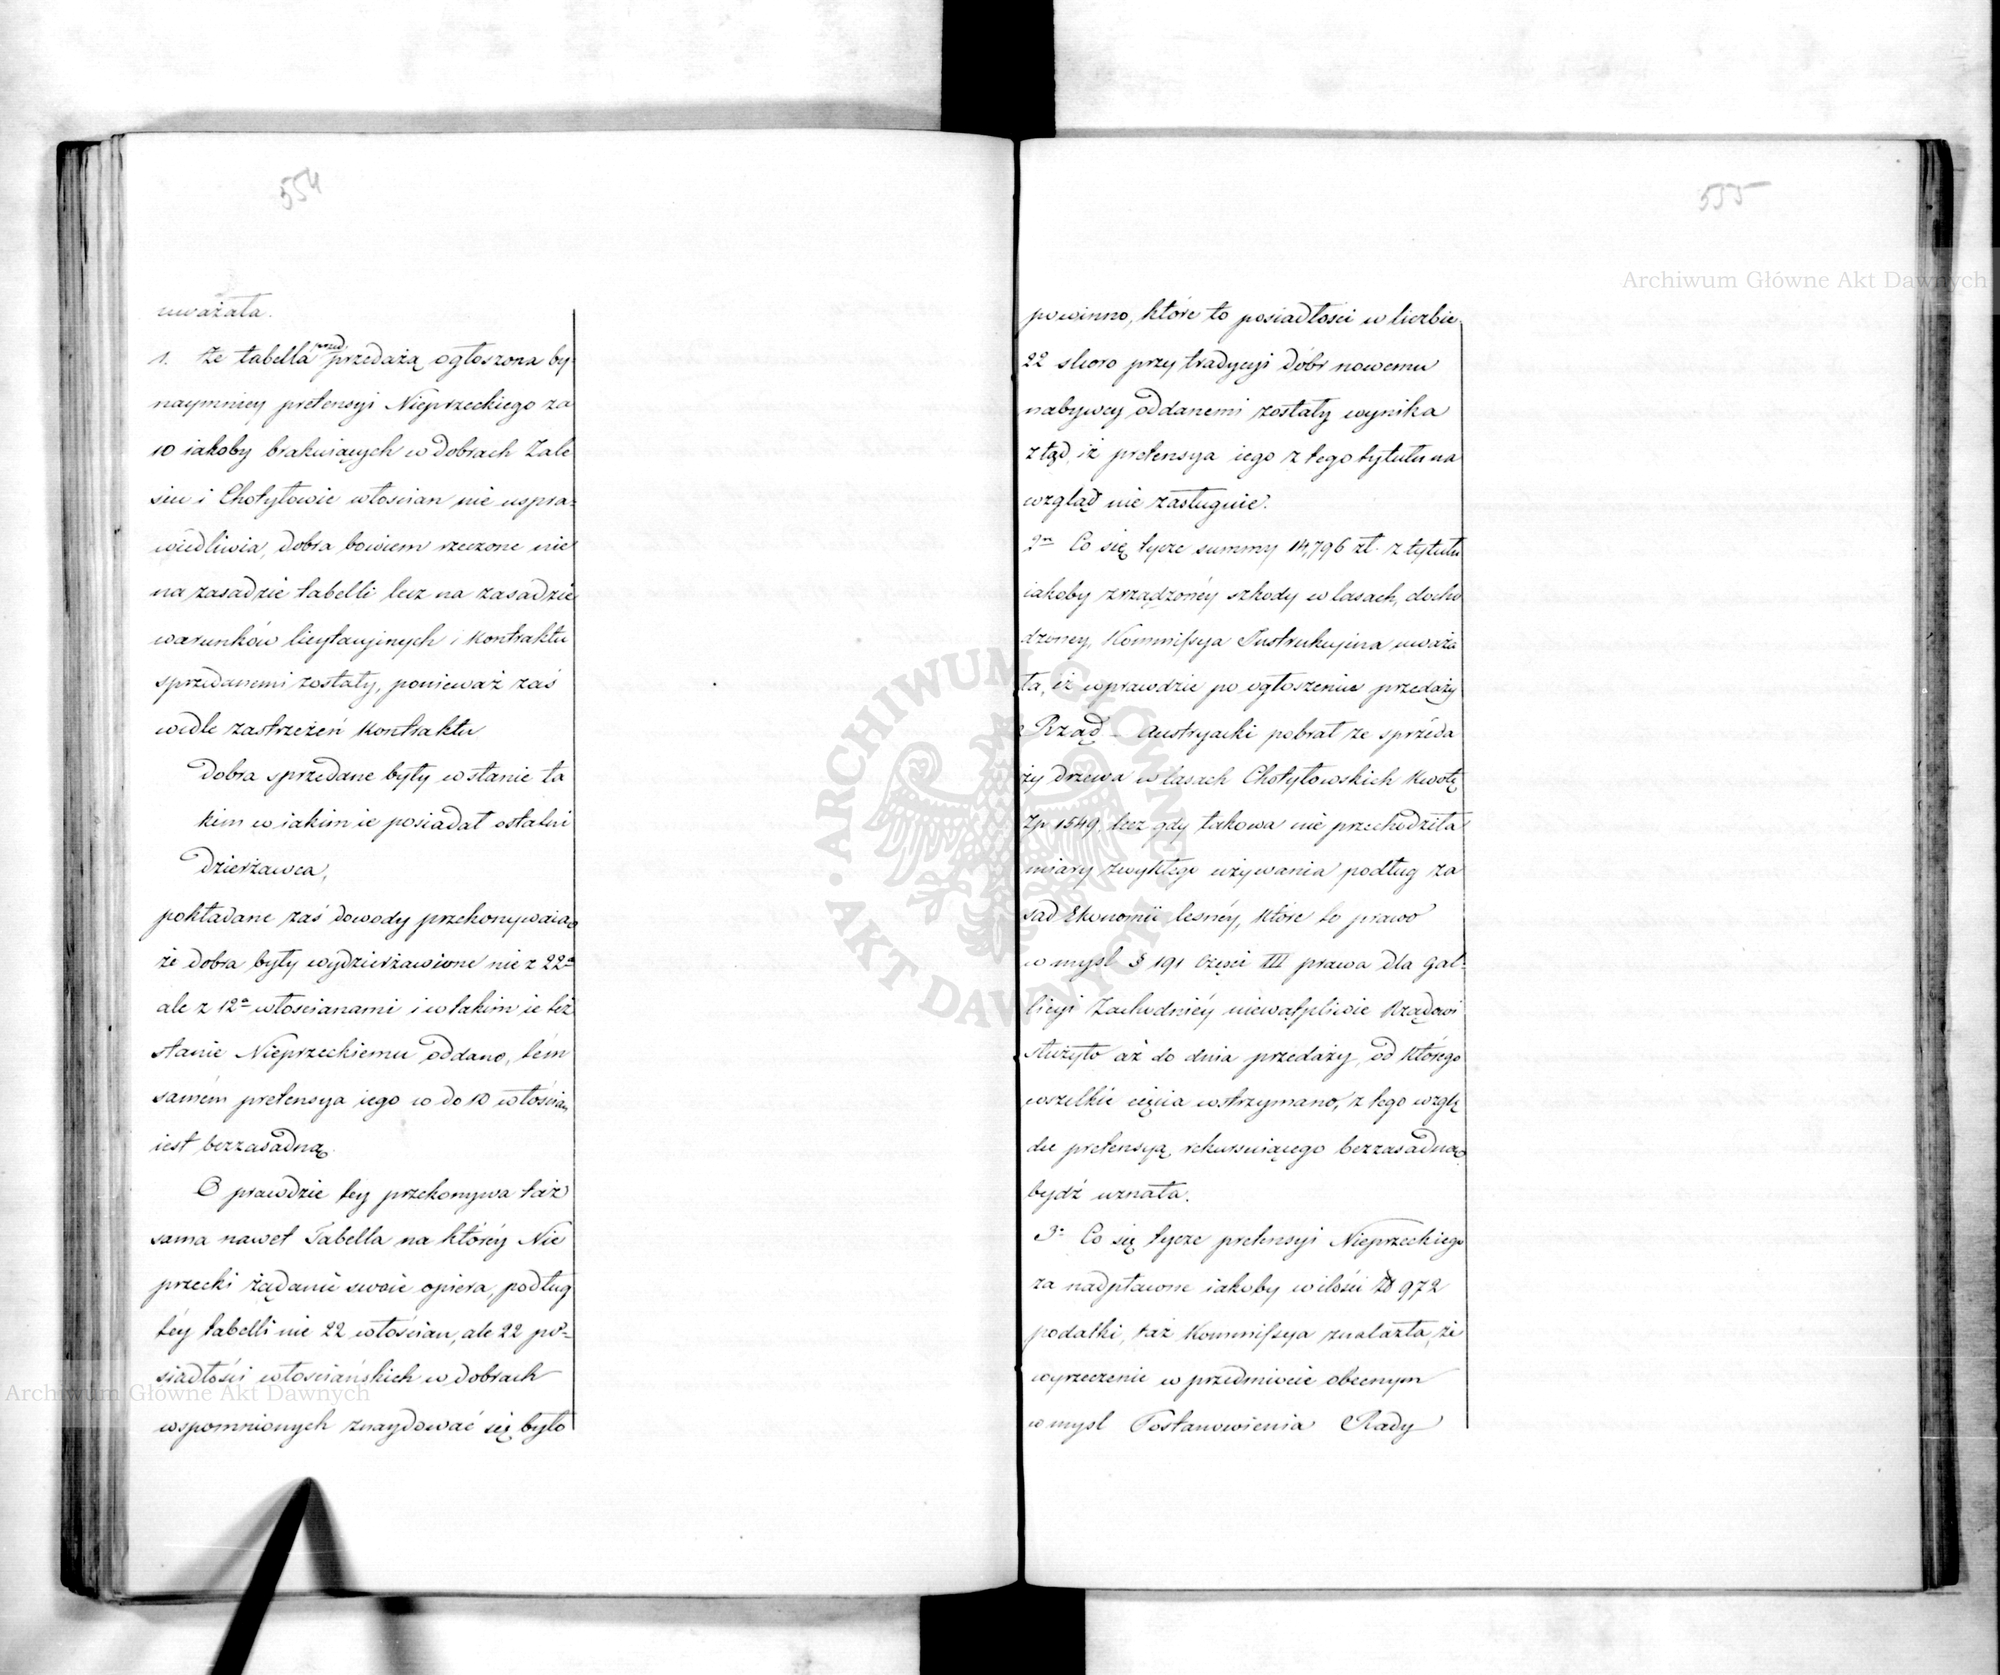 554
uważała.
1. że tabella przed przedażą ogłoszona by-
naymniey pretensyi Nieprzeckiego za
10 iakoby brakuiących w dobrach Zale
siu i Chotyłowie włościan nie uspra-
wiedliwia, dobra bowiem rzeczone nie
na zasadzie tabelli lecz na zasadzie
warunków licytacyjnych i kontraktu
sprzedanemi zostały, ponieważ zaś
wedle zastrzeżeń kontraktu
dobra sprzedane były w stanie ta
kim w iakim ie posiadał ostatni
Dzierżawca,
pokładane zaś dowody przekonywaią
że dobra były wydzierżawione nie z 22a
ale z 12a włościanami i w takim ie też
stanie Nieprzeckiemu oddano, tém
samém pretensya iego w do 10 włościan
iest bezzasadną.
O prawdzie tey przekonywa taż
sama nawet Tabella na któréy Nie
przecki żądanie swoie opiera, podług
téy tabelli nie 22 włościan, ale 22 po-
siadłości włościańskich w dobrach
wspomnionych znaydować się było
555
powinno, które to posiadłości w liczbie
22 skoro przy tradycyi dóbr nowemu
nabywcy oddanemi zostały wynika
ztąd, iż pretensya iego z tego tytułu na
wzgląd nie zasługuie.
2re Co się tycze summy 14,796 zł. z tytułu
iakoby zrządzonéy szkody w lasach, docho
dzoney, Kommissya Instrukcyjna uważa
ła, iż wprawdzie po ogłoszeniu przedaży
Rząd Austryacki pobrał ze sprzéda
ży drzewa w lasach Chotyłowskich kwotę
Zp 1549. lecz gdy takowa nie przechodziła
miary zwykłego używania podług za
sad Ekonomii leśnéy, które to prawo
w myśl § 191 Części III prawa dla Gal-
licyi Zachodniéy niewątpliwie Rządowi
służyło aż do dnia przedaży, od którego
wszelkie cięcia wstrzymano, z tego wzglę
du pretensyą rekursuiącego bezzasadną
bydź uznała.
3e Co się tycze pretensyi Nieprzeckiego
za nadpłacone iakoby w ilości Zł 972
podatki, taż Kommissya znalazła, że
wyrzeczenie w przedmiocie obecnym
w myśl Postanowienia Rady
Archiwum Główne Akt Dawnych
ARCHIWUM GŁÓWNE AKT DAWNYCH
Archiwum Główne Akt Dawnych